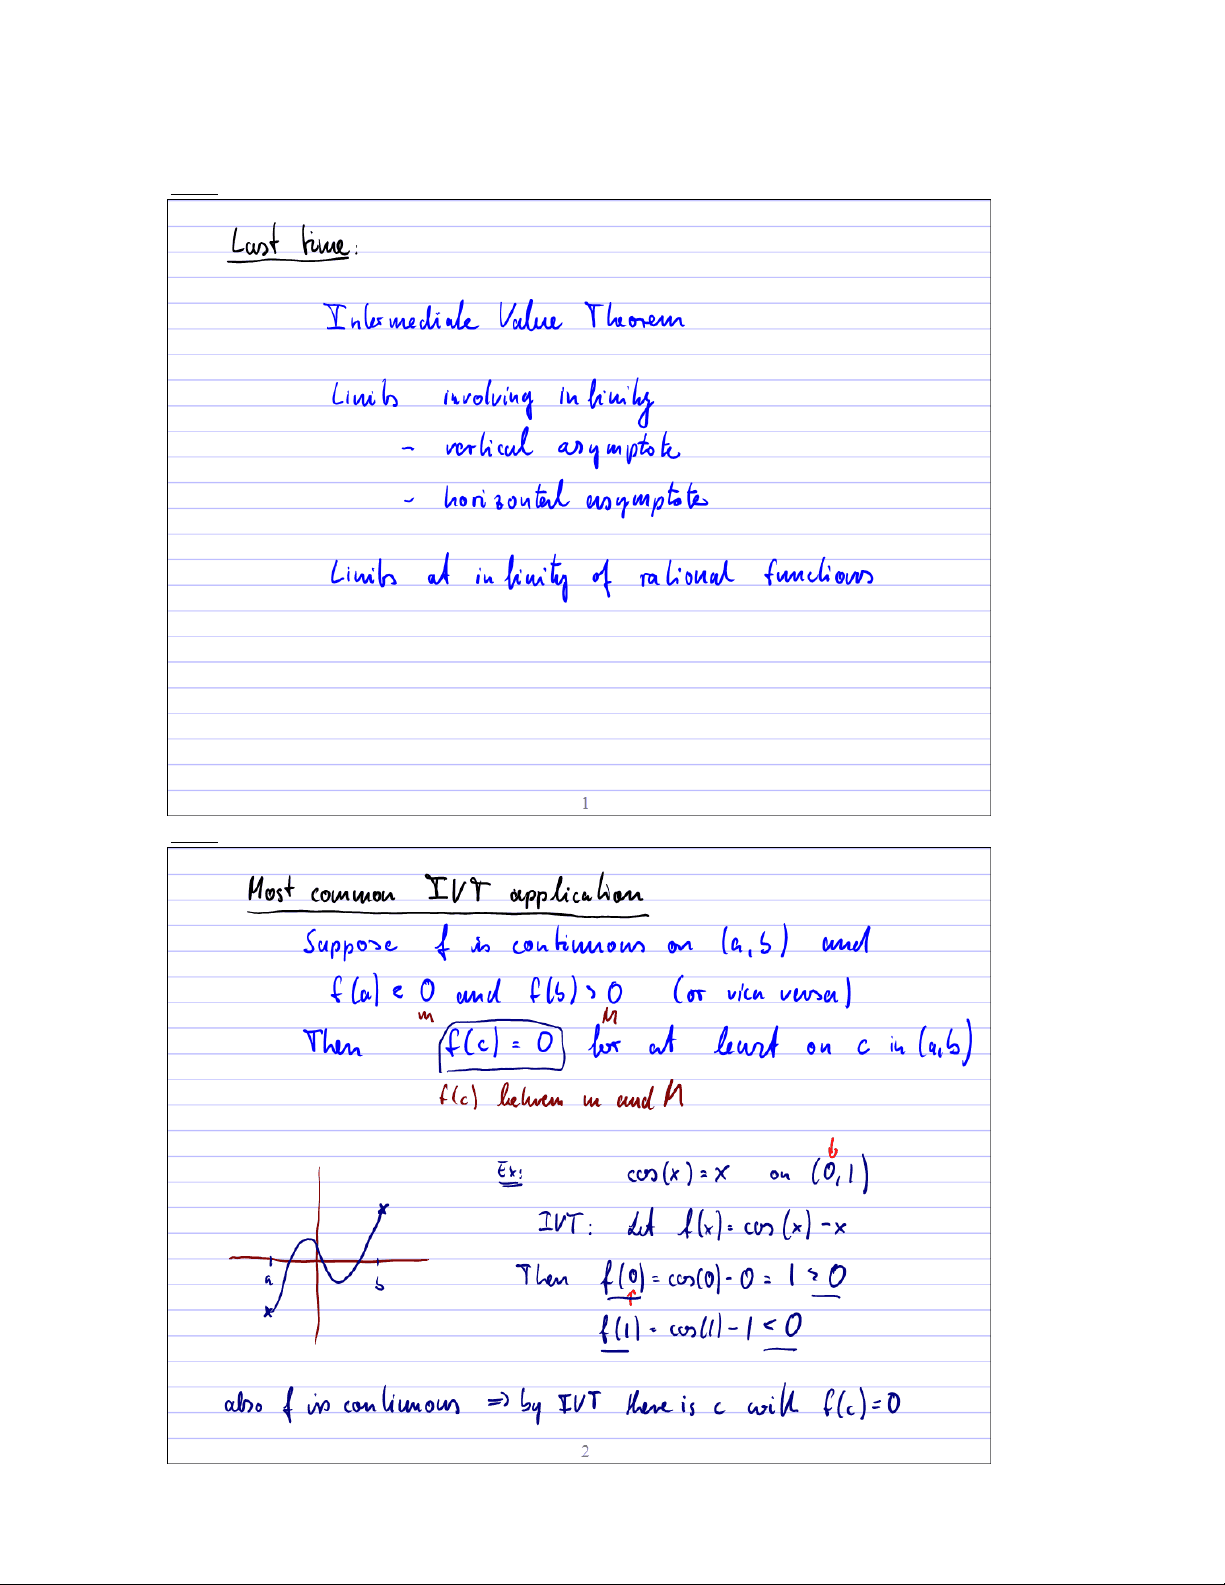 Last time:
Intermediate Value Theorem
Limits involving infinity
- vertical asymptote
- horizontal asymptotes
Limits at infinity of rational functions
1
Most common IVT application
Suppose f is continuous on (a,b) and
f(a) < 0 and f(b) > 0 (or vica versa)
m M
Then f(c) = 0 for at least on c in (a,b)
f(c) between m and M
Ex: cos(x) = x on (0,1)
IVT: Let f(x) = cos(x) - x
Then f(0) = cos(0) - 0 = 1 > 0
a b
f(1) = cos(1) - 1 < 0
also f is continuous => by IVT there is c with f(c) = 0
2